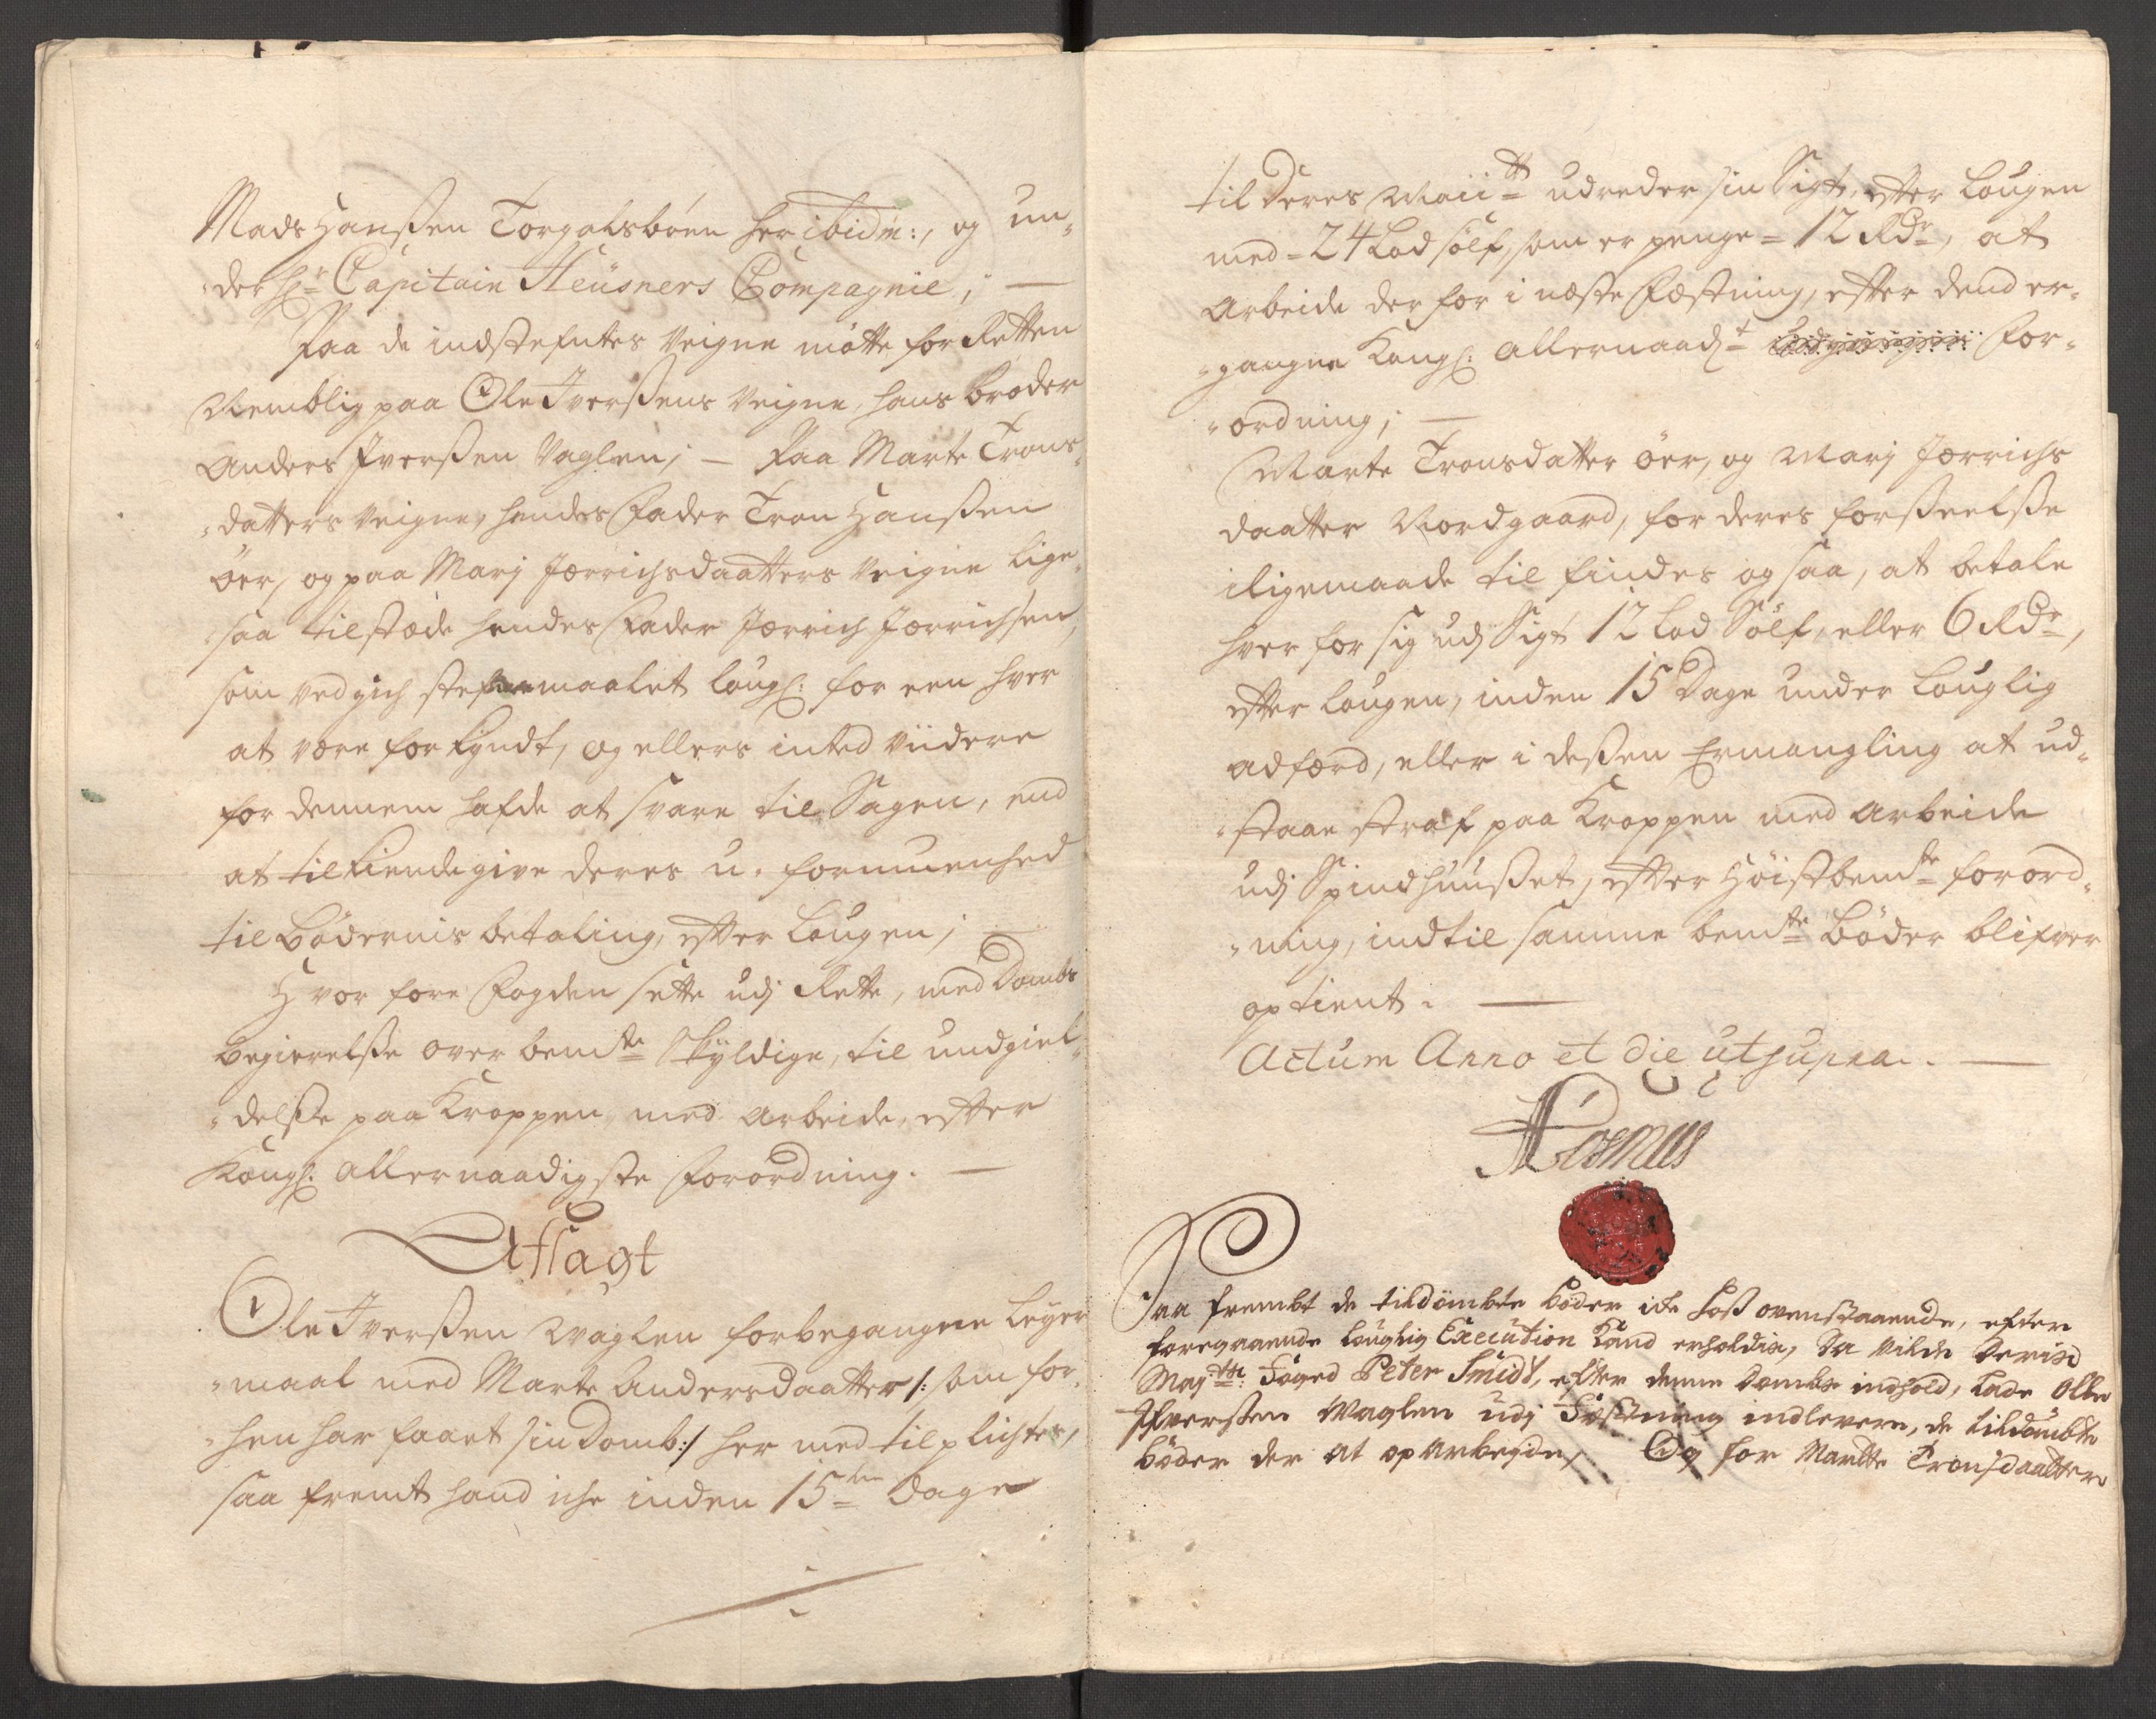 Mads Hanßen Torgalsböen her ibid͞m:, og un-
der Hr Capitain Heüsners Compagnie; —
Paa de indstefntes Veigne mötte for Retten
Nemblig paa Ole Iverßens Veigne, hans broder
Anders Iverßen Vaglen; — Paa Marte Trons-
datters Veigne, hendes Fader Tron Hanßen
öer, og paa Marj Jörrichsdaatters Veigne lige-
saa tilstæde hendes Fader Jörrich Jörrichsen,
som ved gich stefnemaalet lougl: for een hver
at være forkyndt, og ellers inted viidere
for dennem hafde at svare til Sagen, end
at tilkiendegive deres u-formuenhed
til Bödernis betaling, efter Lougen; —
Hvor fore Fogden sette udj Rette, med Dombs
begierelße over bemte Skÿldige, til undgiel-
delße paa Kroppen med Arbeide, efter
Kongl: allernaadigste Forordning. —
Afsagt
Ole Iverßen Waglen forbegangne Leÿer-
maal med Marte Andersdaatter /: som for-
hen har faaet sin Domb :/ her med tilplichtes,
saa fremt hand iche inden 15ten Dage
til Deres Maiitt udreder sin Sigt, efter Lougen
med = 24 Lod sölf, som er penge = 12 Rdr, at
Arbeide der for i næste Fæstning, efter dend er-
gangne Kongl: allernaadst For-
ordning; —
Marte Tronsdatter öer, og Marj Jörrichs
daatter Nordgaard, for deres forseelße
iligemaade til findes og saa, at betale
hver for sig udj Sigt 12 Lod Sölf, eller 6 Rdr,
efter Lougen, inden 15 Dage under Louglig
adfærd, eller i deßen Ermangling at ud-
staae straf paa Kroppen med Arbeide
udj Spindhuußet, efter Höistbemte forord-
ning, indtil samme bemte Böder blifver
optient. —
Actum Anno et die ut supra. —
Saa frembt de tildömbte böder iche hoß ovenstaaende, efter
foregaaende louglig Execution kand erholdis, Da vilde Deris
Maytts: Foged Peter Smidt, efter denne Dombs indhold, lade Olle
Ifverßen Waglen udj Fæstning indlevere, de tildömbte
böder der at op Arbeyde, Og for Martte Tronsdaatter